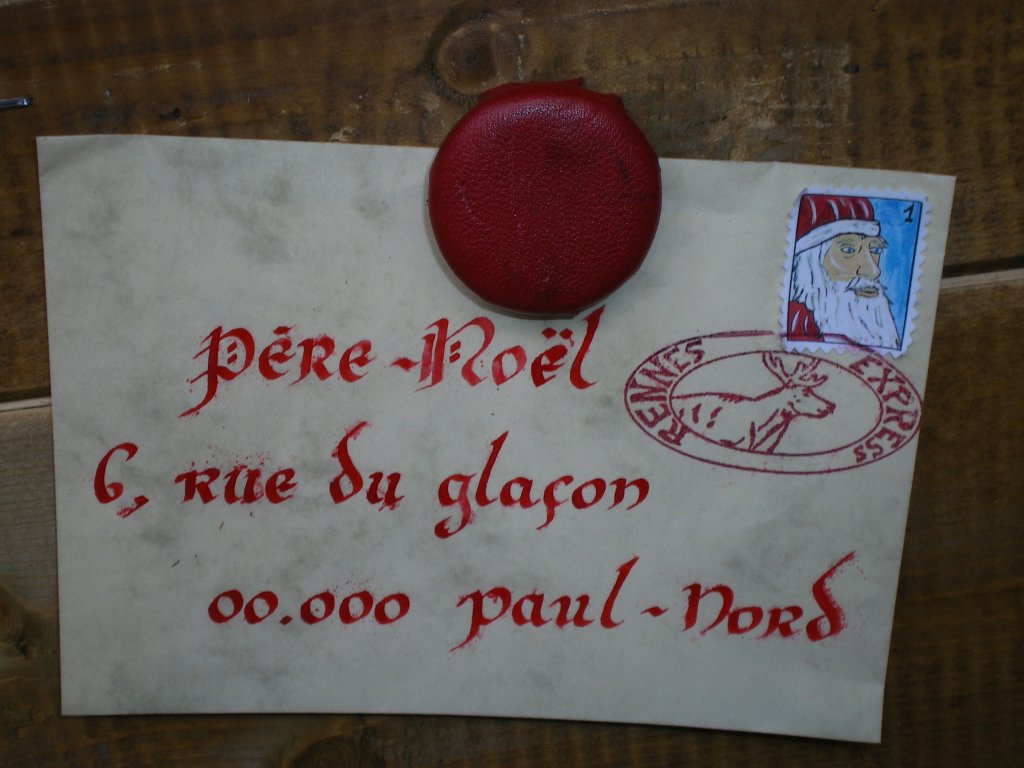 1
Père-Noël
RENNES EXPRESS
6, rue du glaçon
00.000 paul-Nord